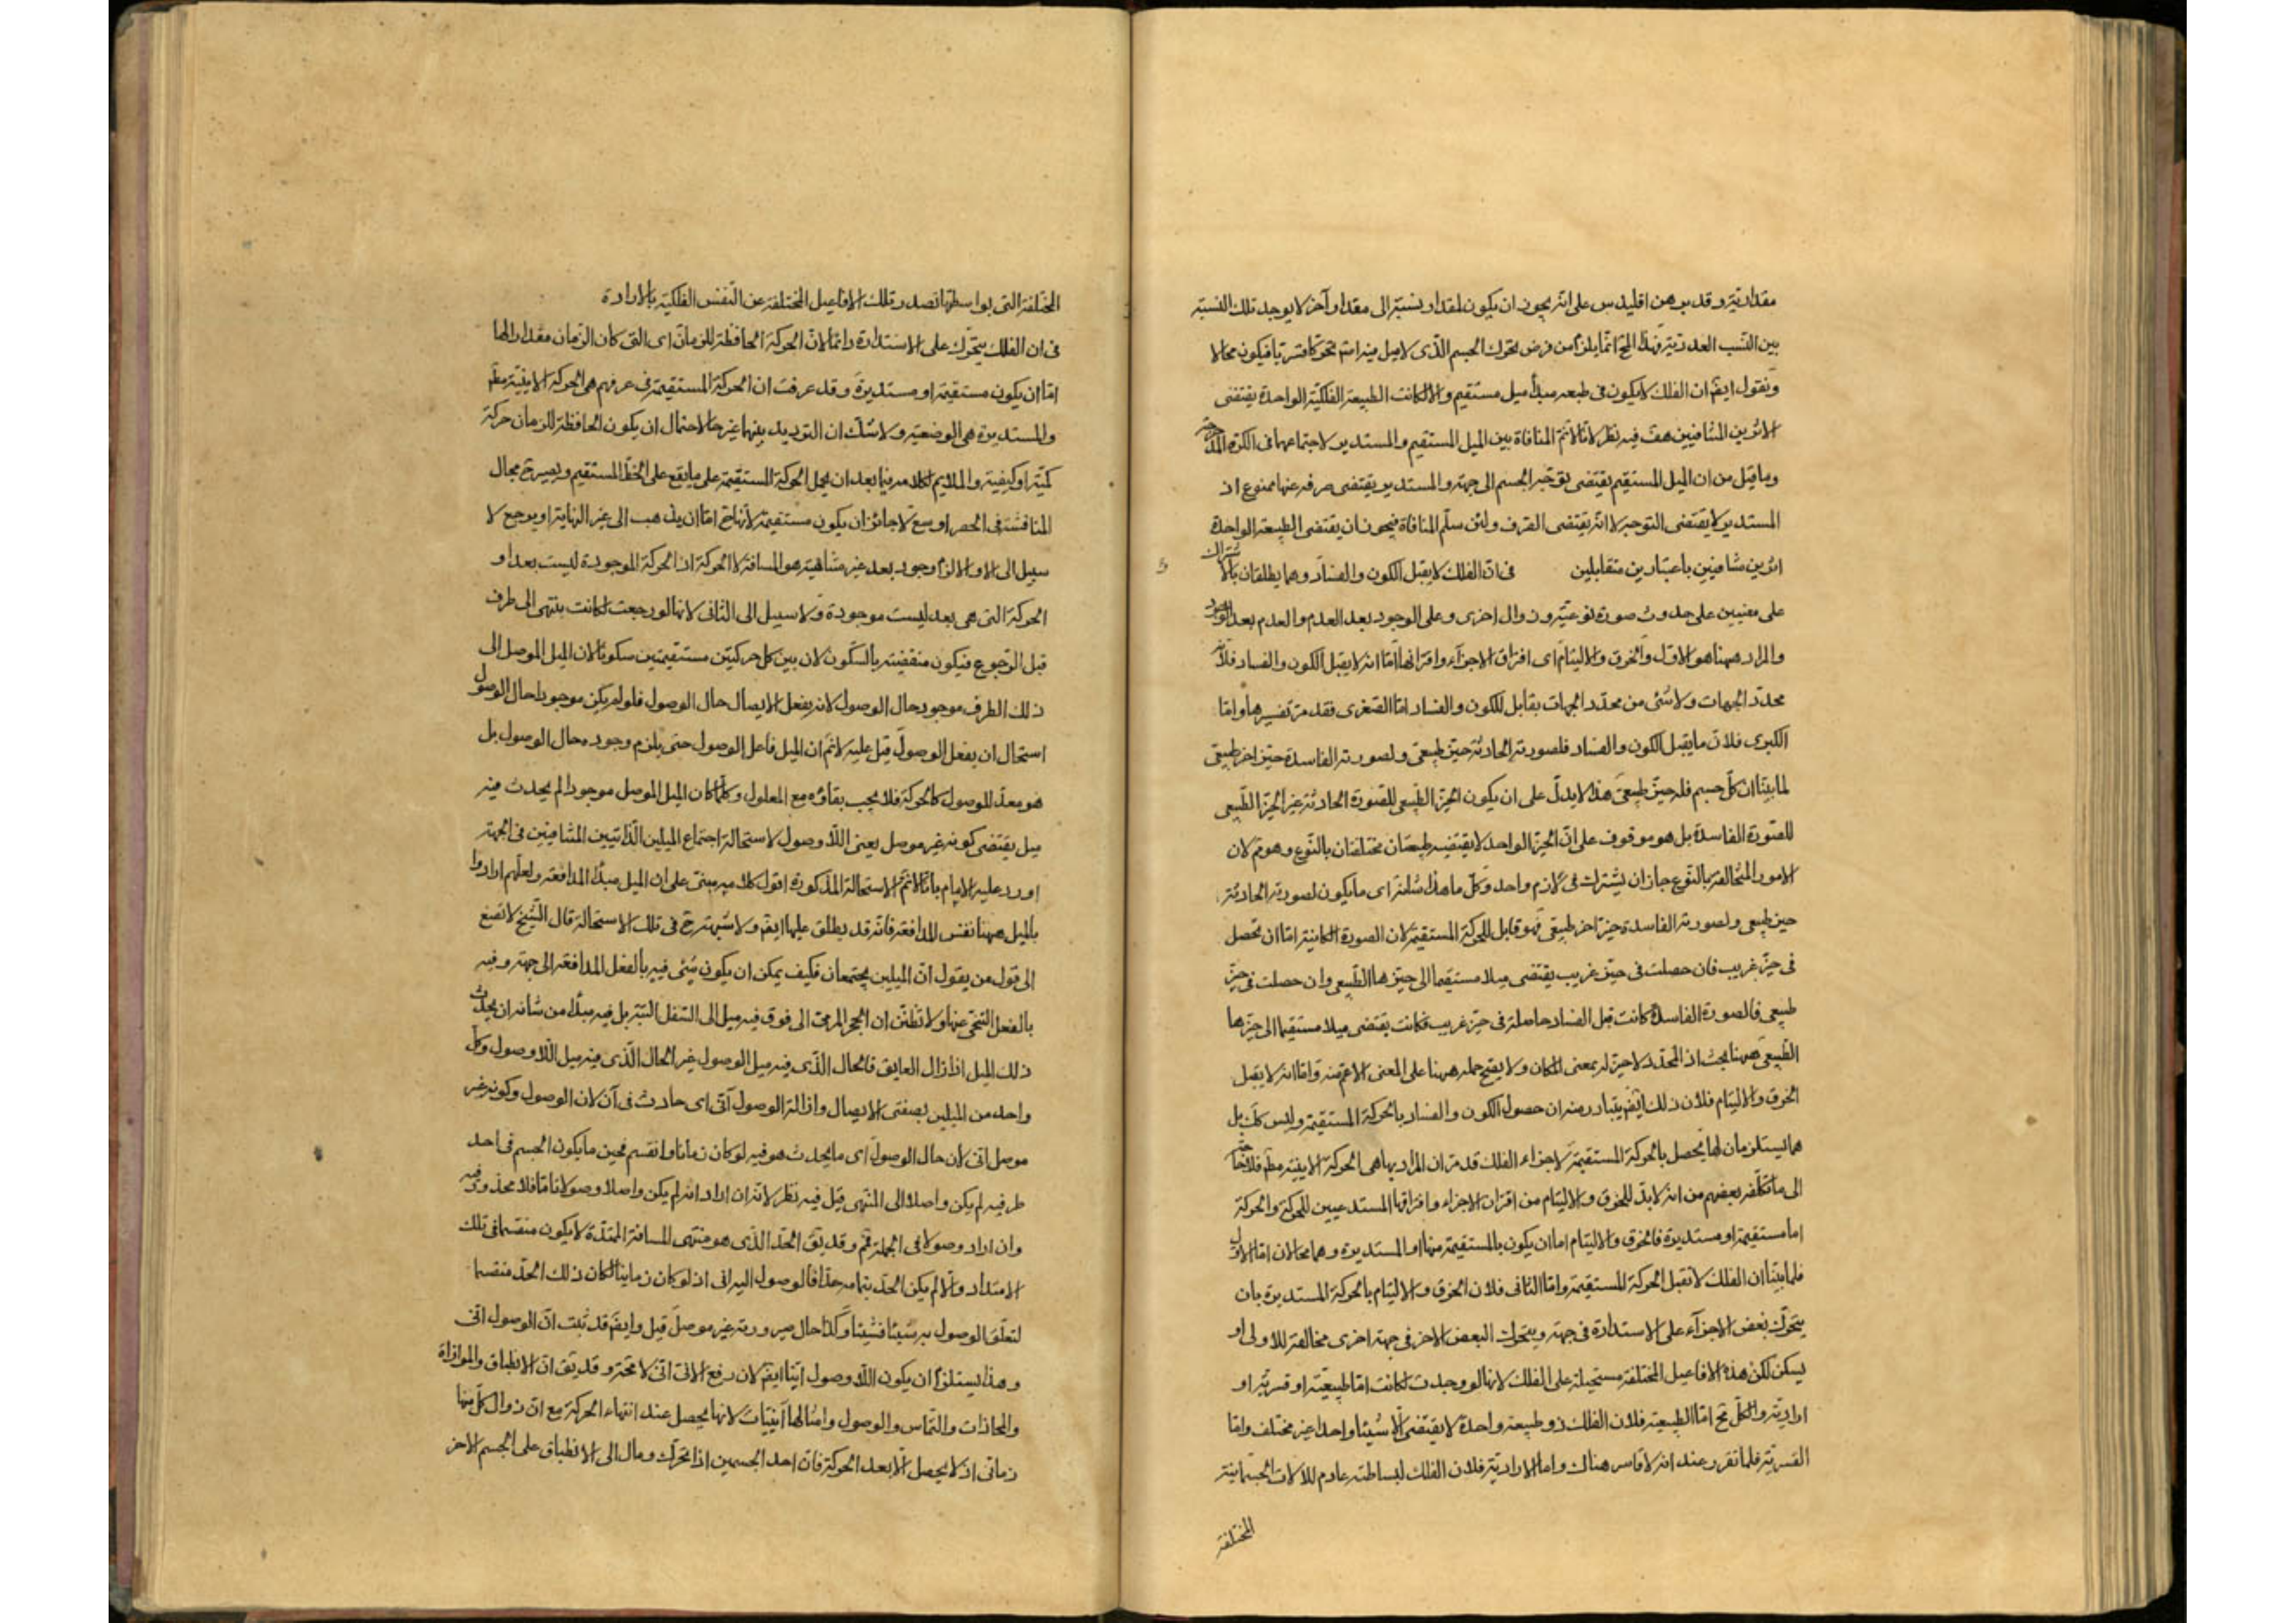 مقداريّة وقد برهن اقليدس على انّه يجوز ان يكون لمقدار نسبة الى مقدار آخر لا يوجد تلك النسبة
بين النّسب العدديّة فهذا المح انّما يلزم من فرض تحرك الجسم الّذى لا ميل فيه اصلا تحركا قسريا فيكون محالا
ونقول ايضّ ان الفلك لا يكون فى طبعه مبدأ ميل مستقيم والا لكانت الطبيعة الفلكيّة الواحدة يقتضى
الاثرين المتنافيين هف فيه نظر لانّا لا نم المنافاة بين الميل المستقيم والمستدير لاجتماعهما فى الكرة المدحرجة
وما قيل من ان الميل المستقيم يقتضى توجّه الجسم الى جهة والمستدير يقتضى صرفه عنها ممنوع اذ
المستدير لا يقتضى التوجه لا انّه يقتضى الصرف ولئن سلّم المنافاة فيجوز ان يقتضى الطبيعة الواحدة
اثرين متنافيين باعتبارين متقابلين فى انّ الفلك لا يقبل الكون والفساد وهما يطلقان بالاشتراك
على معنيين على حدوث صورة نوعيّة وزوال اخرى وعلى الوجود بعد العدم والعدم بعد الوجود
والمراد ههنا هو الاوّل والخرق والالتيام اى افتراق الاجزآء واقترانها امّا انه لا يقبل الكون والفساد فلانّه
محدّد الجهات ولا شئ من محدّد الجهات بقابل للكون والفساد امّا الصّغرى فقد مرّ تفسيرها وامّا
الكبرى فلانّ ما يقبل الكون والفساد فلصورته الحادثة حيّز طبيعىّ ولصورته الفاسدة حيّز اخر طبيعىّ
لما بيّنا ان كلّ جسم فله حيّز طبيعىّ هذا لا يدلّ على ان يكون الحيّز الطّبيعى للصّورة الحادثة غير الحيّز الطّبيعى
للصّورة الفاسدة بل هو موقوف على انّ الحيّز الواحد لا يقتضيه طبيعتان مختلفتان بالنّوع وهو مم لان
الامور المتخالفة بالنّوع جاز ان يشترك فى لازم واحد وكلّ ما هذا شانه اى ما يكون لصورته الحادثة
حيز طبيعى ولصورته الفاسدة حيّز اخر طبيعىّ فهو قابل للحركة المستقيمة لان الصورة الكاينة امّا ان تحصل
فى حيّز غريب فان حصلت فى حيّز غريب يقتضى ميلا مستقيما الى حيّزها الطّبيعى وان حصلت فى حيّز
طبيعى فالصورة الفاسدة كانت قبل الفساد حاصلة فى حيّز غريب فكانت يقتضى ميلا مستقيما الى حيّزها
الطّبيعى ههنا بحث اذ المحدّد لا حيّز له بمعنى المكان ولا يصح حمله ههنا على المعنى الاعمّ منه وامّا انه لا يقبل
الخرق والالتيام فلان ذلك ايضّ يتبادر منه ان حصول الكون والفساد بالحركة المستقيمة وليس كلك بل
هما يستلزمان لها يحصل بالحركة المستقيمة لاجزاء الفلك قد مرّ ان المراد بها هى الحركة الاينيّة مطّ فلا حاجة
الى ما تكلّفه بعضهم من انه لا بدّ للخرق والالتيام من اقتران الاجزاء وافتراقها المستدعيين للحركة والحركة
اما مستقيمة او مستديرة فالخرق والالتيام اما ان يكون بالمستقيمة منها او المستديرة وهما محالان امّا الاوّل
فلما بيّنا ان الفلك لا يقبل الحركة المستقيمة وامّا الثانى فلان الخرق والالتيام بالحركة المستديرة بان
يتحرّك بعض الاجزآء على الاستدارة فى جهة ويتحرك البعض الاخر فى جهة اخرى مخالفة للاولى او
يسكن لكن هذه الافاعيل المختلفة مستحيلة على الفلك لانها لو وجدت لكانت امّا طبيعيّة او قسريّة او
اراديّة والكلّ مح امّا الطبيعيّة فلان الفلك ذو طبيعة واحدة لا يقتضى الّا شيئا واحدا غير مختلف وامّا
القسريّة فلما تقرر عندهم انه لا قاسر هناك واما الاراديّة فلان الفلك لبساطته عادم للآلات الجسمانيّة
المختلفة
المختلفة التى بواسطتها تصدر تلك الافاعيل المختلفة عن النّفس الفلكيّة بالارادة
فى ان الفلك يتحّرك على الاستدارة دائما لانّ الحركة الحافظة للزمان اى التى كان الزّمان مقدارا لها
امّا ان يكون مستقيمة او مستديرة وقد عرفت ان الحركة المستقيمة فى عرفهم هى الحركة الاينيّة مطّ
والمستديرة هى الوضعيّة ولا شكّ ان الترديد بينهما غير حاصر لاحتمال ان يكون الحافظة للزمان حركة
كميّة او كيفية والملايم لكلامه فيما بعد ان يحمل الحركة المستقيمة على ما يقع على الخطّ المستقيم ويصير ح مجال
المناقشة فى الحصر اوسع لا جائز ان يكون مستقيمة لانّها ح امّا ان يذهب الى غير النهاية او يرجع لا
سبيل الى الاول والا لزم وجود بعد غير متناهية هو المسافة لا الحركة اذ الحركة الموجودة ليست بعدا و
الحركة التى هى بعد ليست موجودة ولا سبيل الى الثانى لانها لو رجعت لكانت ينتهى الى طرف
قبل الرّجوع فيكون منقضية بالسّكون لان بين كل حركتين مستقيمتين سكونا لان الميل الموصل الى
ذلك الطرف موجود حال الوصول لانه يفعل الايصال حال الوصول فلو لم يكن موجودا حال الوصول
استحال ان يفعل الوصول قيل عليه لا نم ان الميل فاعل الوصول حتى يلزم وجوده حال الوصول بل
هو معدّ للوصول كالحركة فلا يجب بقاؤه مع المعلول وكلّما كان الميل الموصل موجودا لم يحدث فيه
ميل يقتضى كونه غير موصل يعنى اللّا وصول لاستحالة اجتماع الميلين الذّاتيين المتنافيين فى الجهة
اورد عليه الامام بانّا لا نم الاستحالة المذكورة اقول كلامه مبنىّ على ان الميل مبدأ المدافعة ولعلّهم ارادوا
بالميل ههنا نفس المدافعة فانّه قد يطلق عليها ايضّ ولا شبهة ح فى تلك الاستحالة قال الشّيخ لا تصغ
الى قول من يقول انّ الميلين يجتمعان فكيف يمكن ان يكون شئ فيه بالفعل المدافعة الى جهة وفيه
بالفعل التنحّى عنها ولا تظنّن ان الحجر المرمىّ الى فوق فيه ميل الى السّفل البتة بل فيه مبدأ من شانه ان يحدث
ذلك الميل اذا زال العايق فالحال الّذى فيه ميل الوصول غير الحال الّذى فيه ميل اللّا وصول وكل
واحد من الميلين بصفتى الايصال وازالة الوصول آنىّ اى حادث فى آن لان الوصول وكونه غير
موصل انى لان حال الوصول اى ما يحدث هو فيه لو كان زمانا وانقسم فحين ما يكون الجسم فى احد
طرفيه لم يكن واصلا الى المنتهى قيل فيه نظر لانّه ان اراد انه لم يكن واصلا وصولا تامّا فلا محذور فيه
وان اراد وصولا فى الجملة فمّ وقد يقّ الحدّ الذّى هو منتهى المسافة الممتدّة لا يكون منقسما فى تلك
الامتداد والّا لم يكن الحدّ بتمامه حدّا فالوصول اليه انى اذ لو كان زمانيا لكان ذلك الحدّ منقسما
لتعلّق الوصول به شيئا فشيئا وكذا حال صيرورته غير موصل قيل وايضّ قد ثبت انّ الوصول انى
وهذا يستلزم ان يكون اللّا وصول آنيّا ايضّ لان رفع الانى انىّ لا محّة وقد يق انّ الانطباق والموازاة
والمحاذات والتّماس والوصول وامثالها آنيّات لانها يحصل عند انتهاء الحركة مع انّ زوال كلّ منها
زمانى اذ لا يحصل الّا بعد الحركة فانّ احد الجسمين اذا تحرّك ومال الى الانطباق على الجسم الاخر